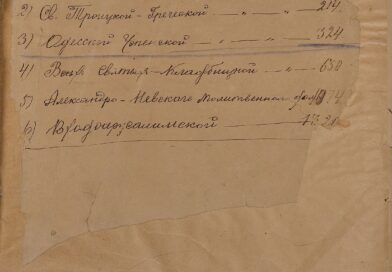 2) Св. Троицкой - Греческой — „ — „ — 214
3) Одесской Успенской — „ — „ — 324
4) Всѣх Святых - Кладбищной — „ — 638
5) Александро - Невского Молитвенного
6) Взодоарусалимской